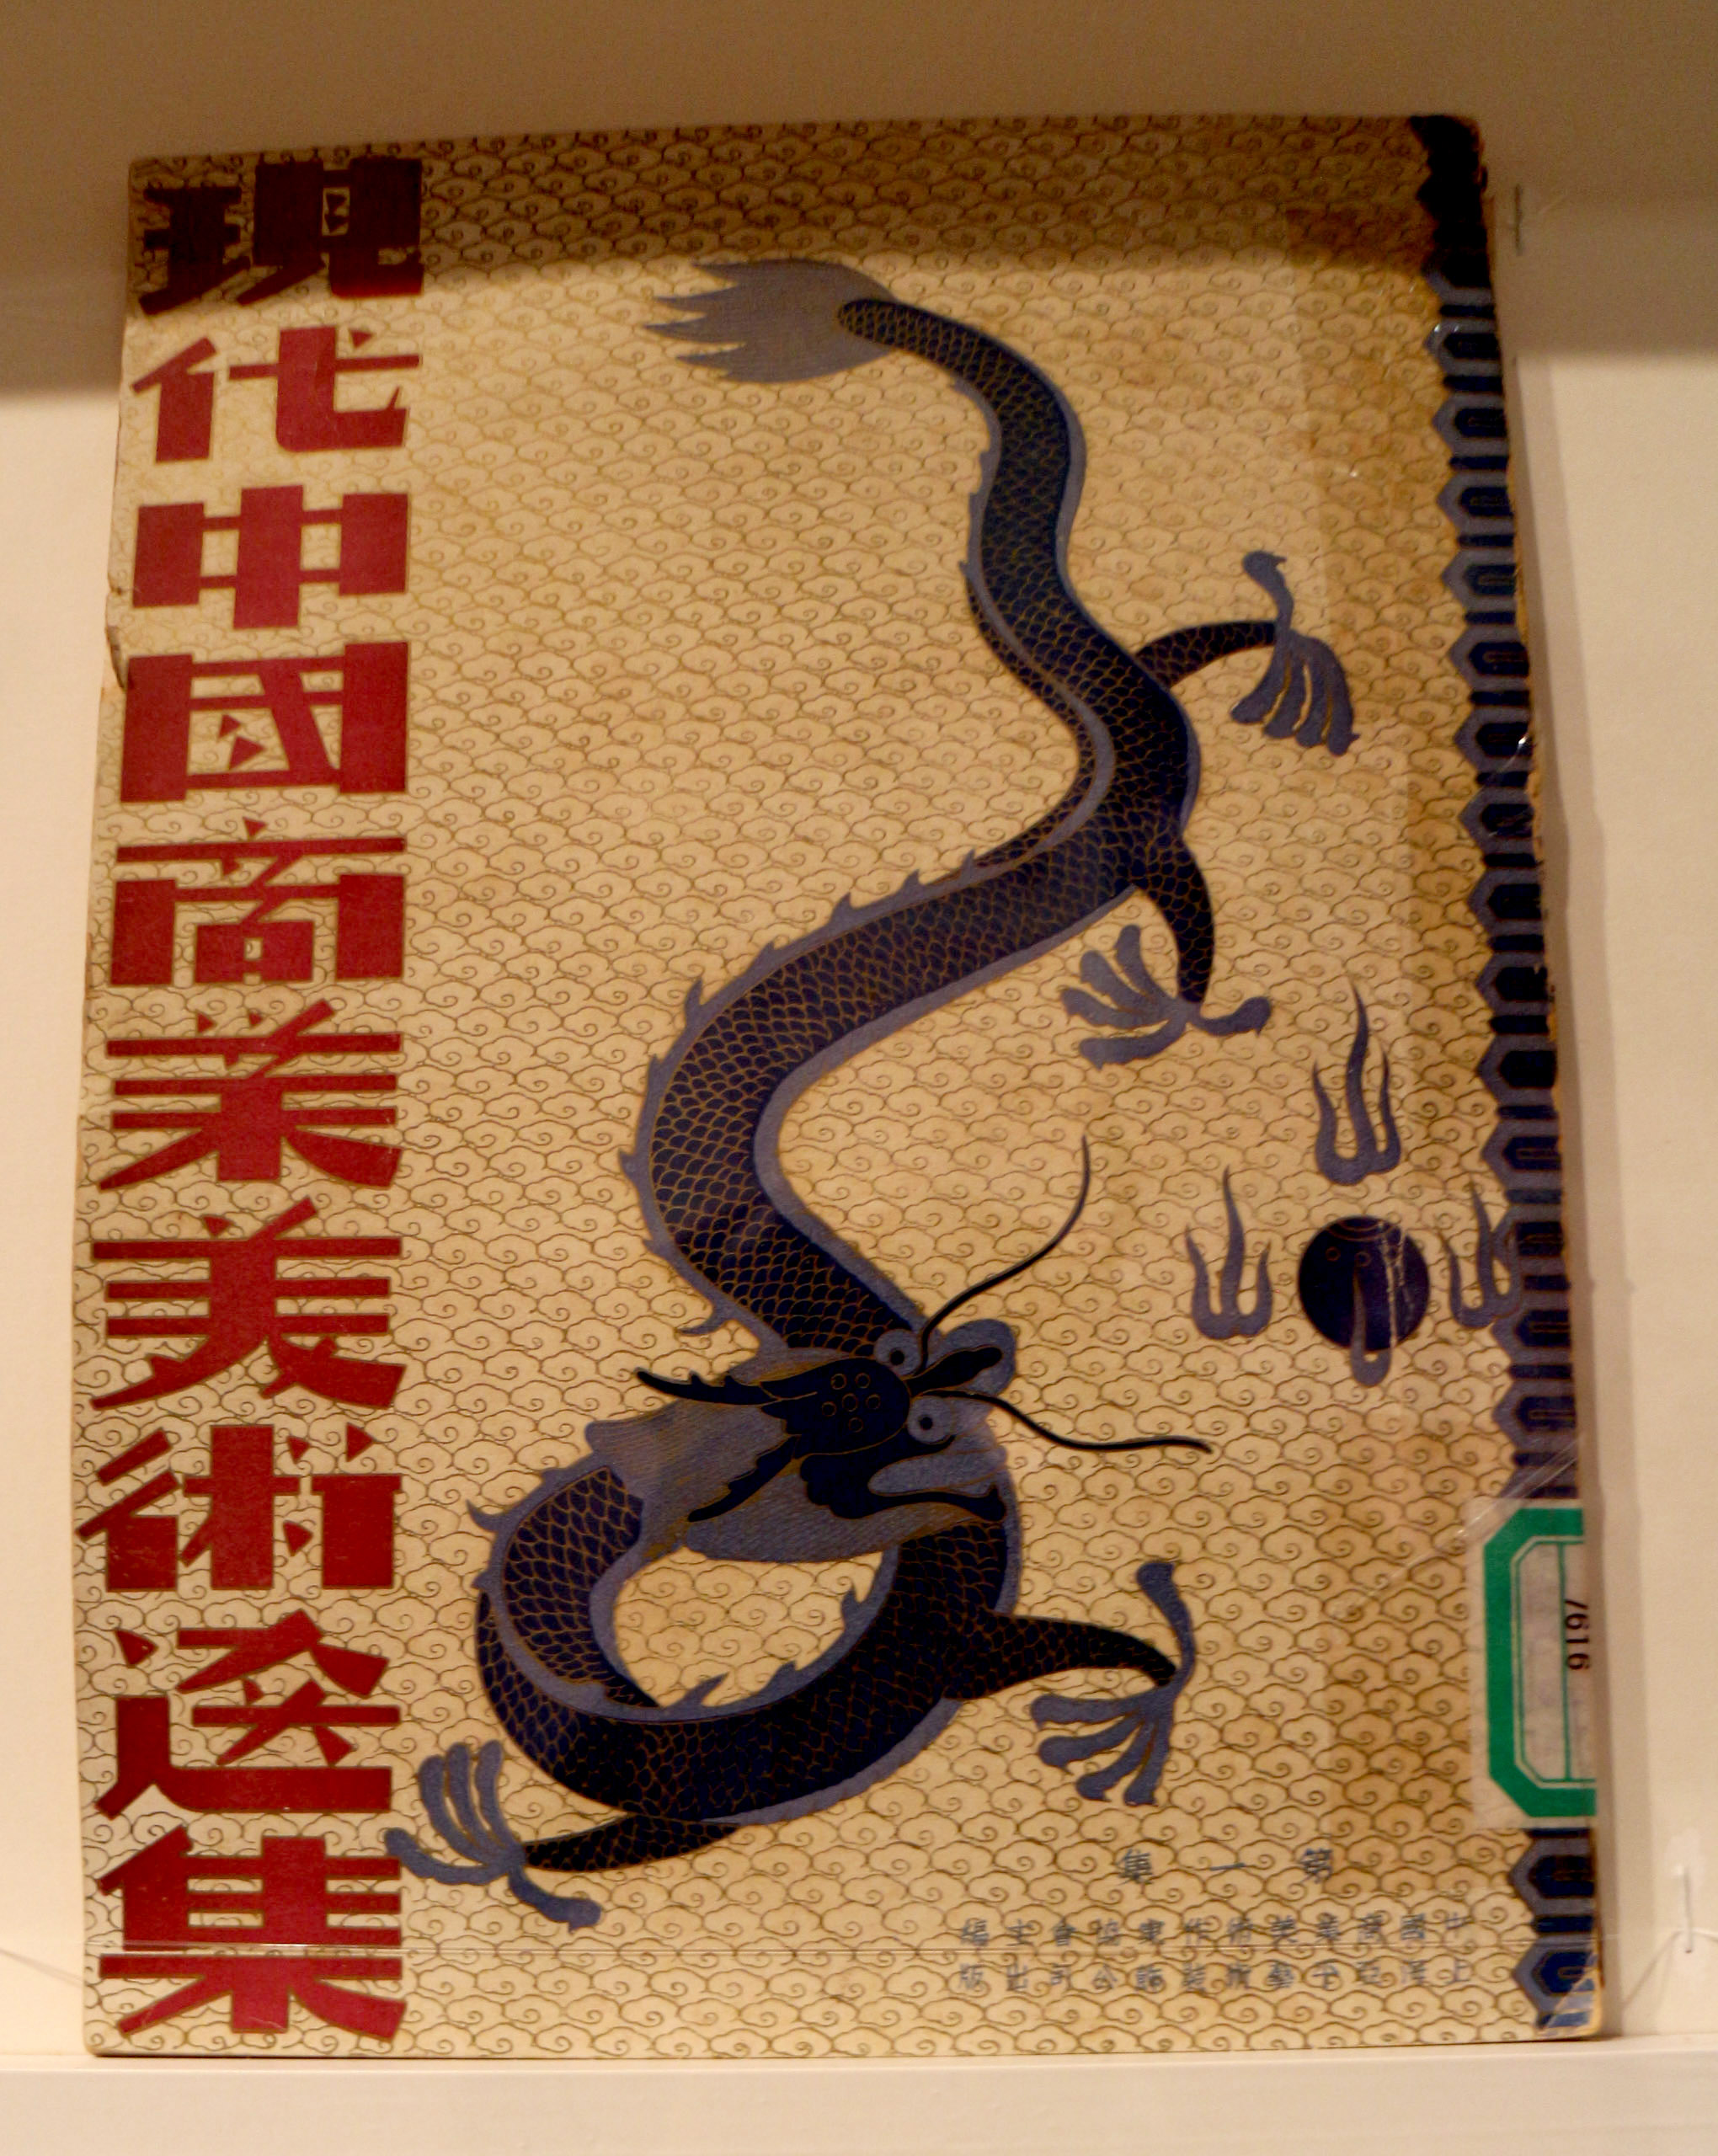 現代中國商業美術選集
第一集
中國商業美術作家協會主編
上海亞平藝術裝飾公司出版